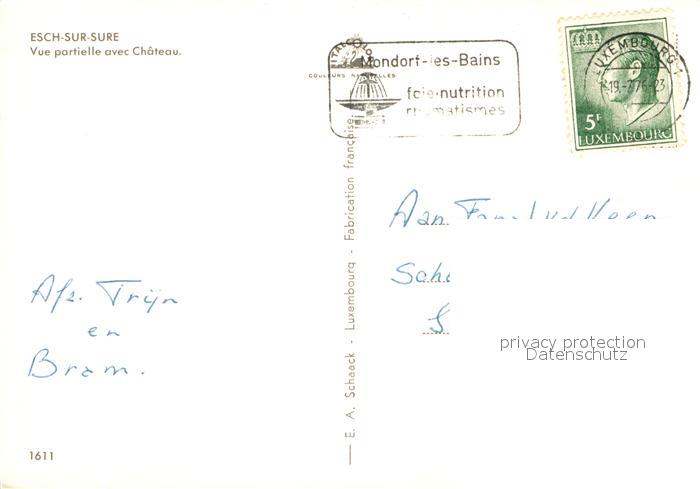 ESCH-SUR-SURE
Vue partielle avec Château.
COULEURS NATURELLES
Mondorf-les-Bains
foie·nutrition
rhumatismes
LUXEMBOURG 1
-19.-7.76-23
5F
LUXEMBOURG
Aan Fam
Afz. Trijn
en
Bram.
E. A. Schaack - Luxembourg - Fabrication française
privacy protection
Datenschutz
1611